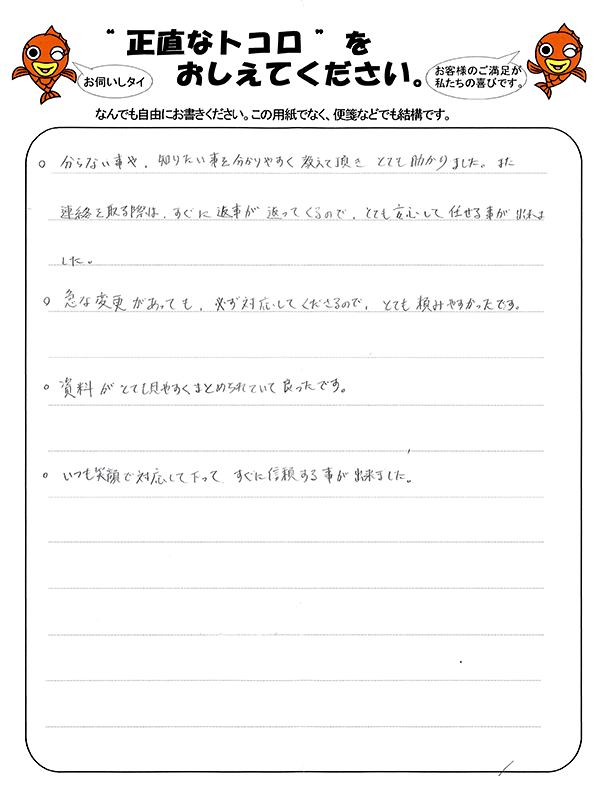 “正直なトコロ”を
おしえてください。
お伺いしタイ
お客様のご満足が
私たちの喜びです。
なんでも自由にお書きください。この用紙でなく、便箋などでも結構です。
○ 分らない事や、知りたい事を分かりやすく教えて頂き とても助かりました。また
連絡を取る際は、すぐに返事が返ってくるので、とても安心して任せる事が出来ま
した。
○ 急な変更があっても、必ず対応してくださるので、とても頼みやすかったです。
○ 資料がとても見やすくまとめられていて良ったです。
○ いつも笑顔で対応して下って、すぐに信頼する事が出来ました。